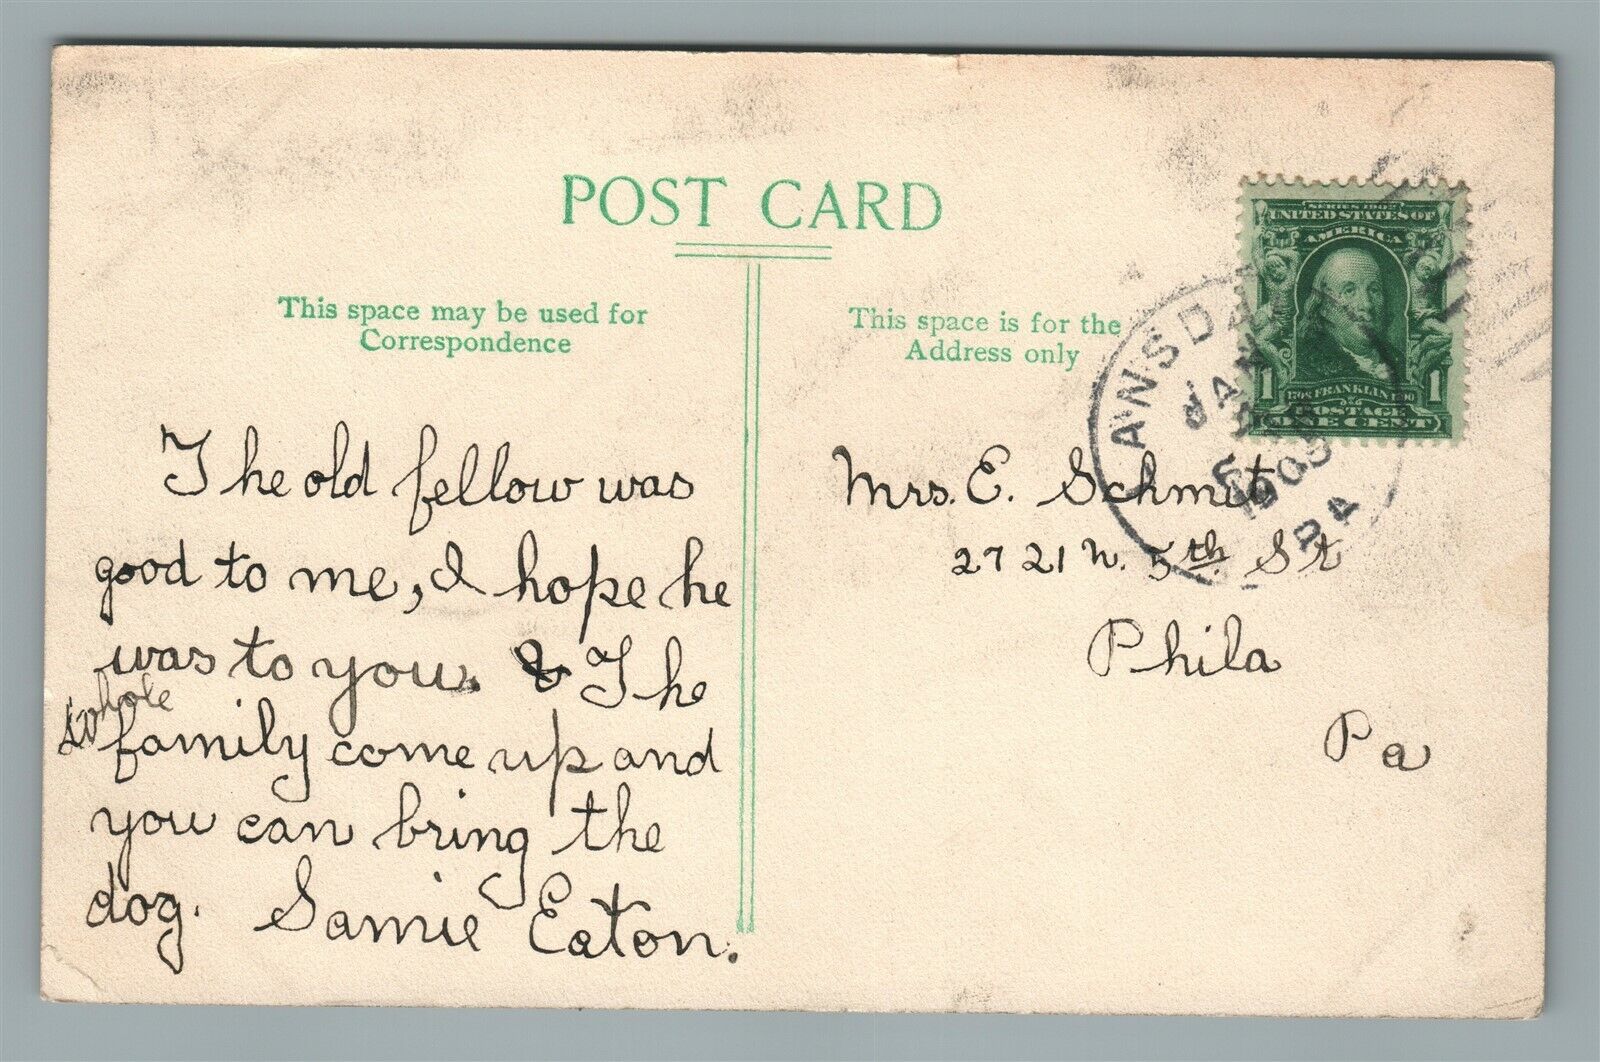 POST CARD
This space may be used for
Correspondence
This space is for the
Address only
The old fellow was
good to me, I hope he
was to you. The
whole
family come up and
you can bring the
dog. Samie Eaton.
Mrs. E. Schmit
2721 N. 5th. St
Phila
Pa
ANSDA
JAN
PA
SERIES 1902
UNITED STATES OF
AMERICA
1 FRANKLIN 1
POSTAGE
ONE CENT